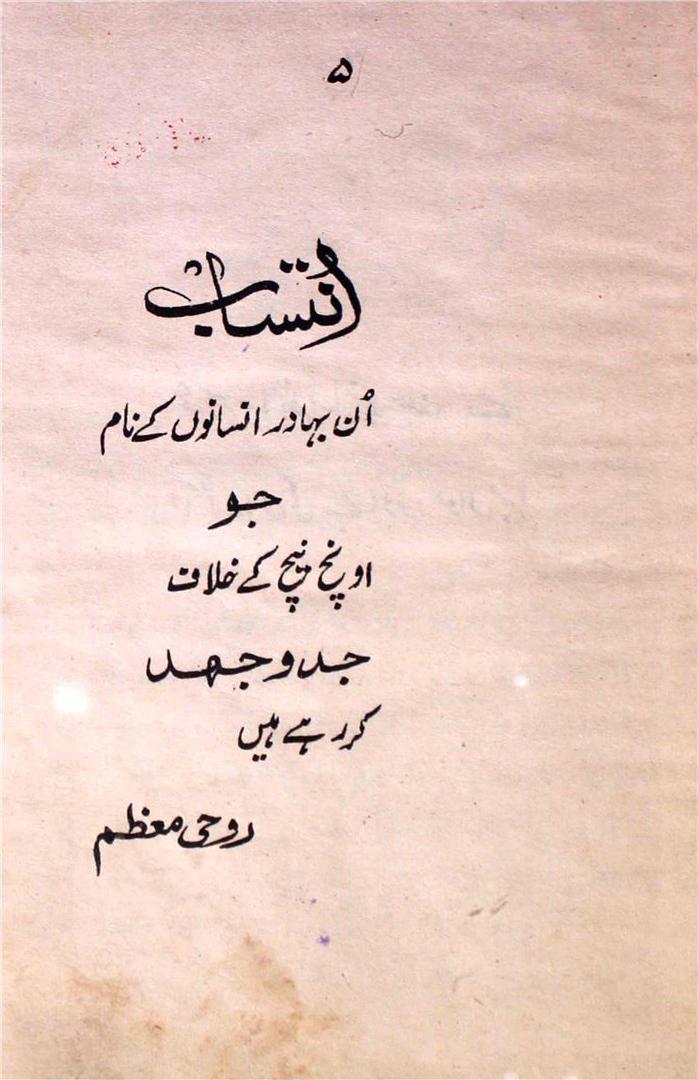 ۵
انتساب
اُن بہادر انسانوں کے نام
جو
اونچ نیچ کے خلاف
جدوجہد
کر رہے ہیں
روحی معظم